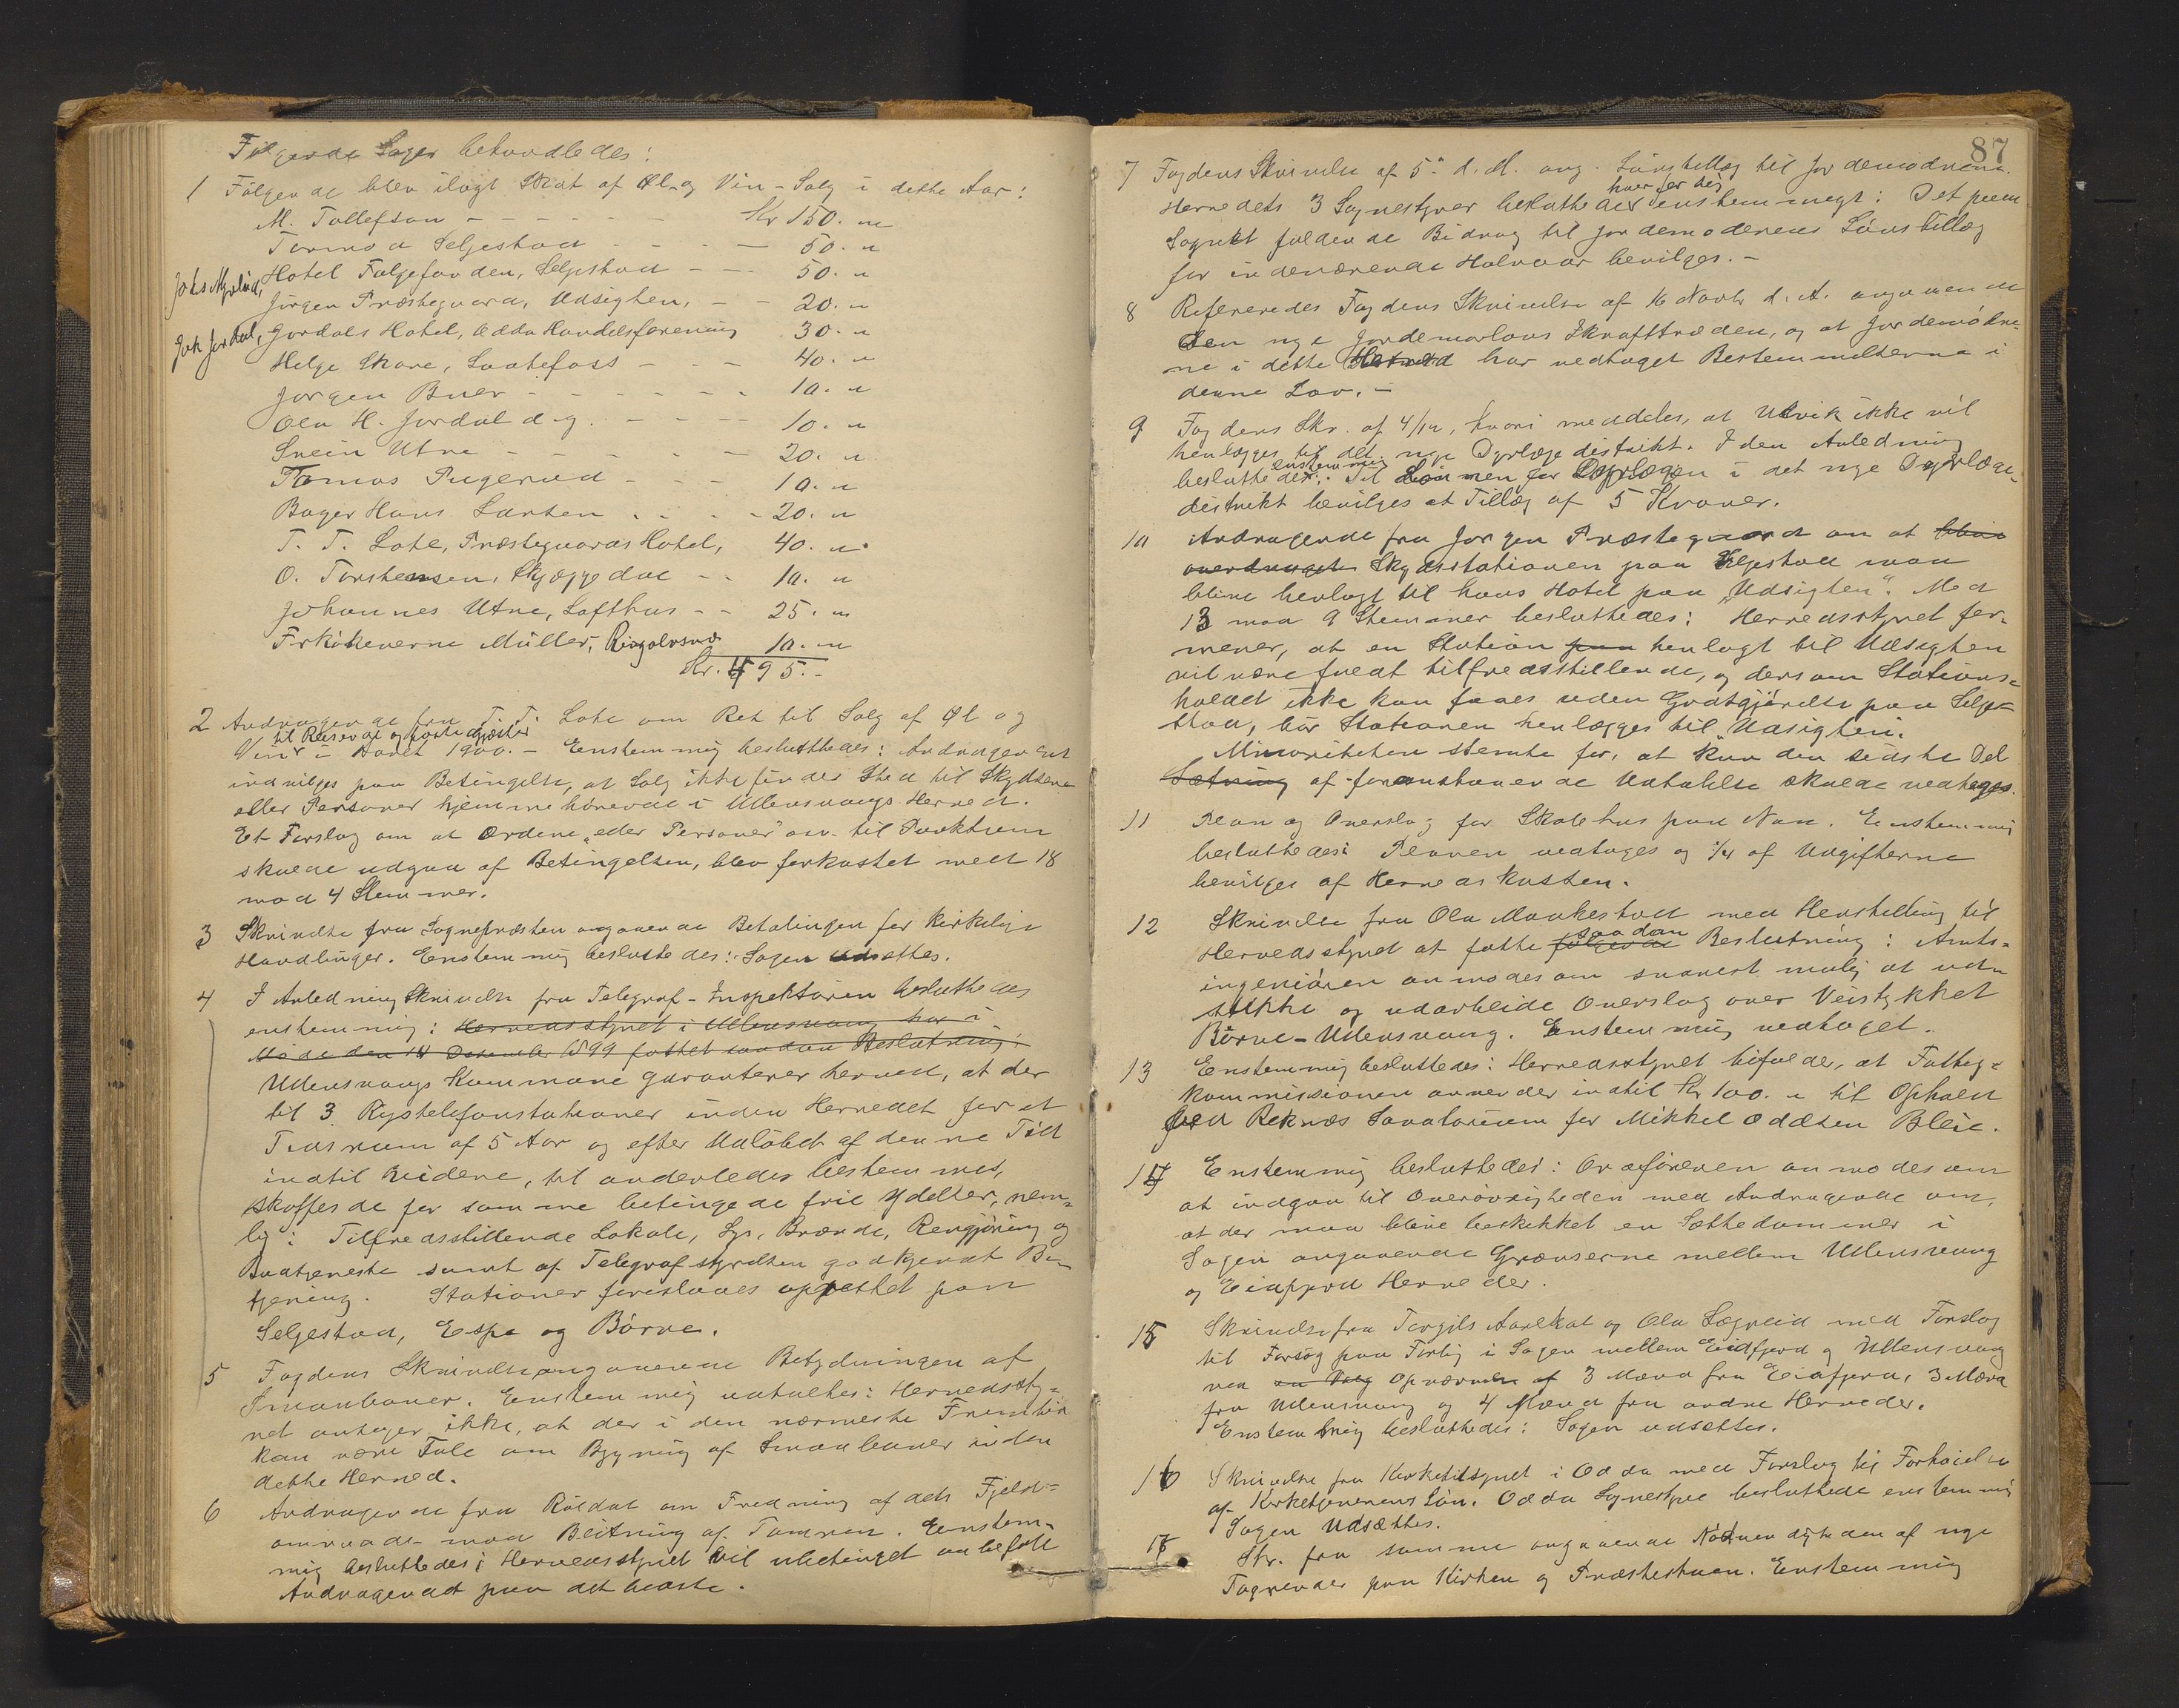 Følgende Sager behandledes:
1 Følgende blev ilagt Skat af Øl- og Vin-Salg i dette Aar:
M. Tollefson - - - - - - Kr 150. "
Tormod Seljestad - - - - 50. "
Johs Mæland, Hotel Folgefonden, Seljestad - - - 50. "
Jørgen Præstegaard, Udsigten, - - 20. "
Joh Jordal, Jordals Hotel, Odda Handelsforening 30. "
Helge Skare, Laatefoss - - - 40. "
Jørgen Buer - - - - - - 10. "
Ola H. Jordal d.y. - - - - 10. "
Svein Utne - - - - - 20. "
Tomas Pugerud - - - 10. "
Bager Hans Larsen - - - 20. "
T. T. Lote, Præstegaards Hotel, 40. "
O. Torstensen, Skjæggedal - - 10. "
Johannes Utne, Lofthus - - 25. "
Frøknerne Müller, Ringøvsnæ 10. "
Kr. 495. -
2 Andragende fra T. T. Lote om Ret til Salg af Øl og
til Reisende og faste Gjæster
Vin i Aaret 1900. - Enstemmig besluttedes: Andragendet
indvilges paa Betingelse, at Salg ikke finder Sted til Skydsende
eller Personer hjemmehørende i Ullensvangs Herred.
Et Forslag om at Ordene "eller Personer" osv. til Punktum
skulde udgaa af Betingelsen, blev forkastet med 18
mod 4 Stemmer.
3 Skrivelse fra Sognepræsten angaaende Betalingen for kirkelige
Handlinger. Enstemmig besluttedes: Sagen udsættes.
4 I Anledning Skrivelse fra Telegraf-Inspektøren besluttedes
enstemmig: Herredsstyret i Ullensvang har i
Møde den 18 Desember 1899 fattet saadan Beslutning:
Ullensvangs Kommune garanterer herved, at der
til 3 Rigstelefonstationer inden Herredet for et
Tidsrum af 5 Aar og efter Udløbet af denne Tid
indtil videre, til anderledes bestemmes,
skaffes de for samme betingede frie Ydelser, nem-
lig: Tilfredsstillende Lokale, Lys, Brænde, Rengjøring og
Budtjeneste samt af Telegrafstyrelsen godkjendt Be-
tjening. Stationer foreslaaes oprettet paa
Seljestad, Espe og Børve.
5 Fogdens Skrivelse angaaende Betydningen af
Smaabaner. Enstemmig udtaltes: Herredssty-
ret antager ikke, at der i den nærmeste Fremtid
kan være Tale om Bygning af Smaabaner inden
dette Herred.
6 Andragende fra Røldal om Fredning af dets Fjeld-
omraade mod Beitning af Tamren. Enstem-
mig besluttedes: Herredsstyret vil ubetinget anbefale
Andragendet paa det bedste.
87
7 Fogdens Skrivelse af 5te d. M. ang. Lønstillæg til Jordemødrene.
hver for sig
Herredets 3 Sognestyrer besluttede enstemmigt: Det paa
Sognet faldende Bidrag til Jordemoderens Lønstillæg
for indeværende Halvaar bevilges. -
8 Refereredes Fogdens Skrivelse af 16 Novbr d. A. angaaende
den nye Jordemorlovs Ikrafttræden, og at Jordemødre-
ne i dette Herred har vedtaget Bestemmelserne i
denne Lov. -
9 Fogdens Skr. af 4/12, hvori meddeles, at Ulvik ikke vil
henlægges til det nye Dyrlægedistrikt. I den Anledning
enstemmig
besluttedes: Til Lønnen for Dyrlægen i det nye Dyrlæge-
distrikt bevilges et Tillæg af 5 Kroner.
10 Andragende fra Jørgen Præstegaard om at blive
overdraget Skydsstationen paa Seljestad maa
blive henlagt til hans Hotel paa "Udsigten". Med
13 mod 9 Stemmer besluttedes: Herredsstyret for-
mener, at en Station paa henlagt til Udsigten
vil være fuldt tilfredsstillende, og dersom Stations-
holdet ikke kan faaes uden Godtgjørelse paa Selje-
stad, bør Stationen henlægges til "Udsigten".
Minoriteten stemte for, at kun den sidste Del
Sætning af foranstaaende Udtalelse skulde vedtages.
11 Plan og Overslag for Skolehus paa Naa. Enstemmig
besluttedes: Planen vedtages og 1/4 af Udgifterne
bevilges af Herredskassen.
12 Skrivelse fra Ola Maakestad med Henstilling til
saadan
Herredsstyret at fatte følgende Beslutning: Amts-
ingeniøren anmodes om snarest mulig at ud-
stikke og udarbeide Overslag over Veistykket
Børve-Ullensvang. Enstemmig vedtaget.
13 Enstemmig besluttedes: Herredsstyret bifalder, at Fattig-
kommissionen anvender indtil Kr 100. " til Ophold
ved Reknæs Sanatorium for Mikkel Oddsen Bleie.
14 Enstemmig besluttedes: Ordføreren anmodes om
at indgaa til Overøvrigheden med Andragende om,
at der maa blive beskikket en Sættedommer i
Sagen angaaende Grænserne mellem Ullensvang
og Eidfjord Herreder.
15 Skrivelse fra Torgils Aarekat og Ola Sægreid med Forslag
til Forsøg paa Forlig i Sagen mellem Eidfjord og Ullensvang
ved en Valg Opnævnelse af 3 Mænd fra Eidfjord, 3 Mænd
fra Ullensvang og 4 Mænd fra andre Herreder.
Enstemmig besluttedes: Sagen udsættes.
16 Skrivelse fra Kirketilsynet i Odda med Forslag til Forhøielse
af Kirketjenerens Løn. Odda Sognestyre besluttede enstemmig
Sagen Udsættes.
17 Skr. fra samme angaaende Nødvendigheden af nye
Tagrender paa Kirken og Præstestuen. Enstemmig